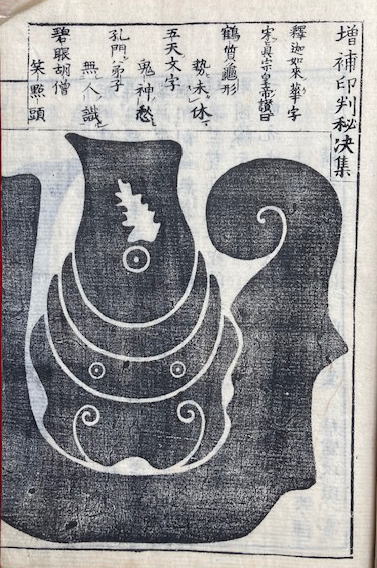 増補印判秘决集
釋迦如來華字
宋真宗皇帝讃曰
鶴質龜形
勢未休
五天文字
鬼神愁
孔門弟子
無人識
碧眼胡僧
笑點頭